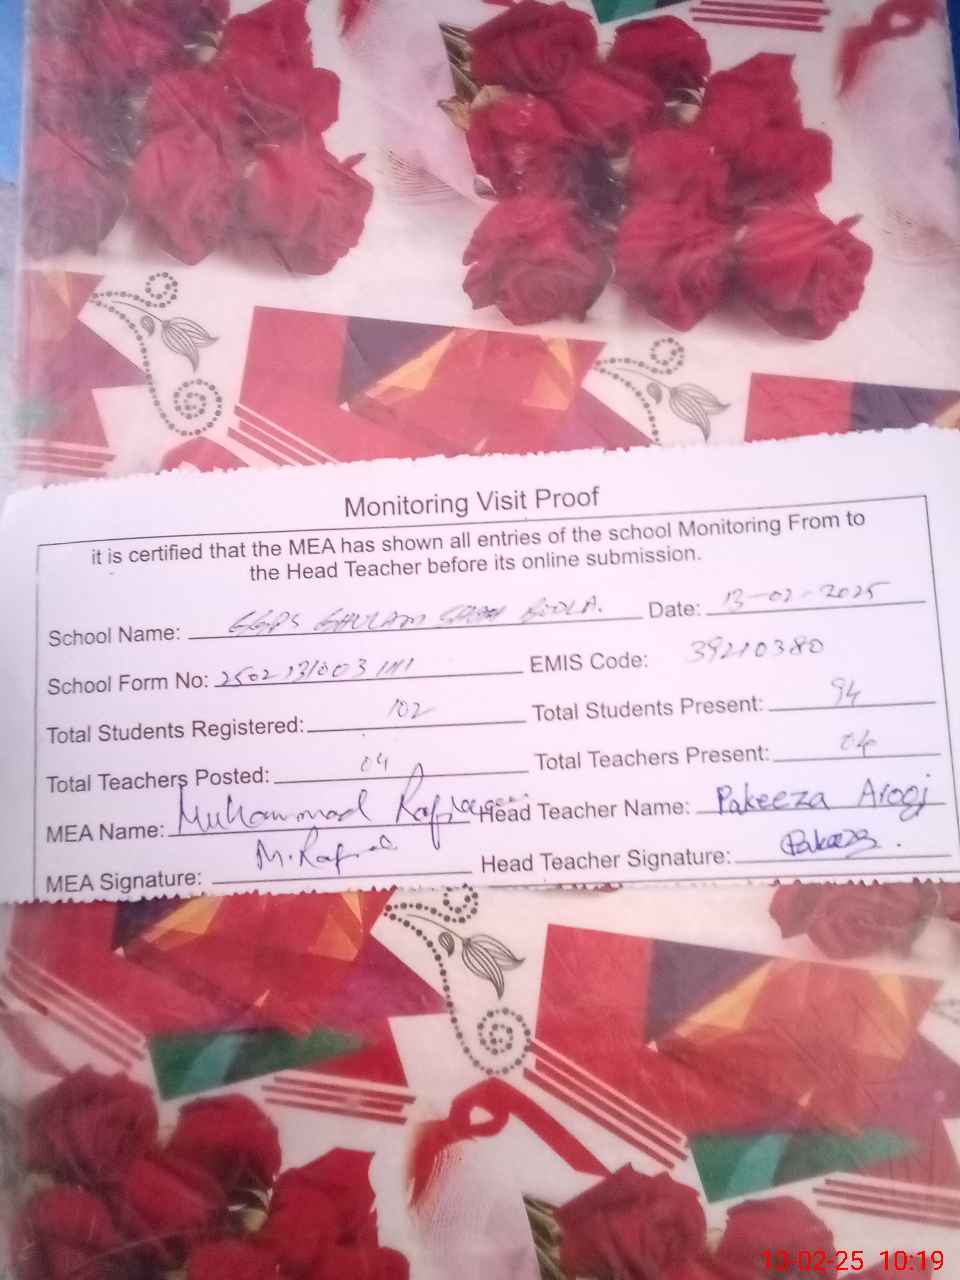 Monitoring Visit Proof
it is certified that the MEA has shown all entries of the school Monitoring From to
the Head Teacher before its online submission.
School Name: GGPS GHULAM SHAH Date: 13-02-2025
School Form No: EMIS Code: 39210380
Total Students Registered: 102 Total Students Present: 94
Total Teachers Posted: 04 Total Teachers Present: 04
MEA Name: Muhammad Head Teacher Name: Pakeeza Arooj
MEA Signature: Head Teacher Signature: Pakeeza
13-02-25 10:19